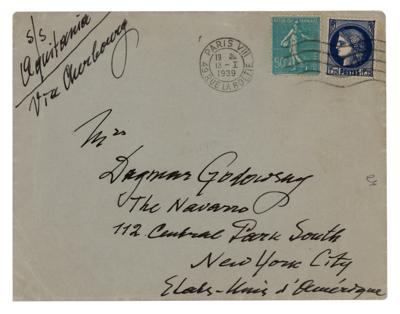 s/s
Aquitania
Via Cherbourg
PARIS VIII
19
13 - I
1939
49 R. DE LA BOETIE
POSTES
Mrs
Dagmar Godowsky
The Navarro
112 Central Park South
New York City
Etats-Unis d'Amérique